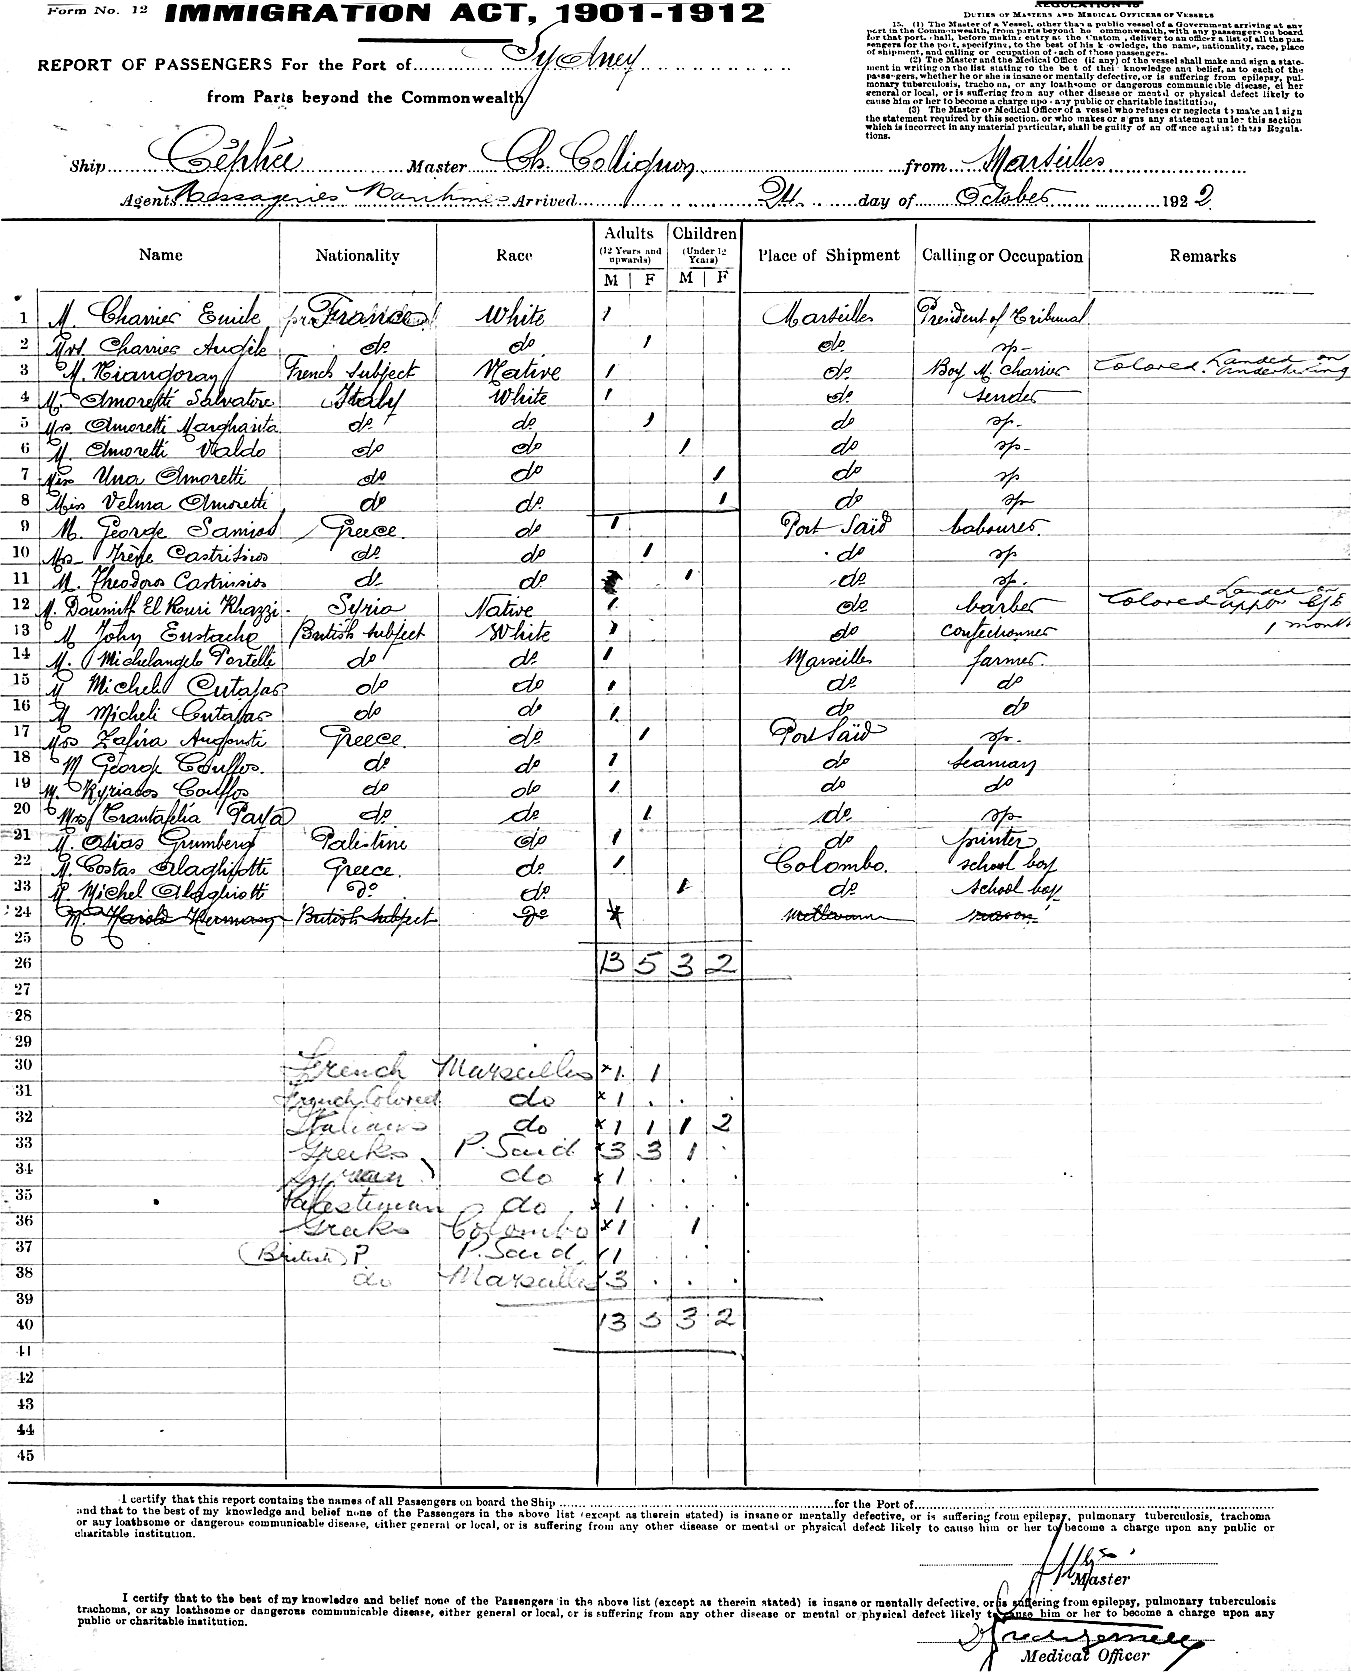 Form No. 12
IMMIGRATION ACT, 1901-1912
REPORT OF PASSENGERS For the Port of Sydney
from Parts beyond the Commonwealth
REGULATION 15
DUTIES OF MASTERS AND MEDICAL OFFICERS OF VESSELS
15. (1) The Master of a Vessel, other than a public vessel of a Government arriving at any
port in the Commonwealth, from parts beyond he ommonwealth, with any passengers on board
for that port, hall, before makin entry at the Custom , deliver to an officer a list of all the pas-
sengers for the port, specifying, to the best of his k owledge, the name, nationality, race, place
of shipment, and calling or occupation of each of those passengers.
(2) The Master and the Medical Office (if any) of the vessel shall make and sign a state-
ment in writing on the list stating to the be t of their knowledge and belief, as to each of the
passe-gers, whether he or she is insane or mentally defective, or is suffering from epilepsy, pul-
monary tuberculosis, tracho na, or any loathsome or dangerous communicable disease, ei her
general or local, or is suffering from any other disease or mental or physical defect likely to
cause him or her to become a charge upo any public or charitable institution,
(3) The Master or Medical Officer of a vessel who refuses or neglects to make an l sign
the statement required by this section, or who makes or s gns any statement under this section
which is incorrect in any material particular, shall be guilty of an offence against these Regula-
tions.
Ship Céphée Master Ch. Collignon from Marseilles
Agents Messageries Maritimes Arrived 24 day of October 1922
Name Nationality Race Adults (12 Years and upwards) M F Children (Under 12 Years) M F Place of Shipment Calling or Occupation Remarks
1 M. Charrier Emile France White 1 Marseilles President of Tribunal
2 Mrs. Charrier do do 1 do sp-
3 M. Niandoray French subject Native 1 do Boy M. Charrier Colored. Landed on undertaking
4 M. Amoretti Salvatore Italy White 1 do sender
5 Mrs Amoretti Margharita do do 1 do sp.
6 M. Amoretti Valdo do do 1 do sp-
7 Miss Una Amoretti do do 1 do sp
8 Miss Velma Amoretti do do 1 do sp
9 M. George Samios Greece do 1 Port Saïd labourer
10 Mrs Irène Castrisios do do 1 do sp
11 M. Theodoros Castrissios do do 1 do sp.
12 M. Doumith El Kouri Khazzi Syria Native 1 do barber Colored Landed on C/E 1 month
13 M John Eustache British subject White 1 do confectionner
14 M. Michelangelo Portelli do do 1 Marseilles farmer.
15 M Micheli Cutajar do do 1 do do
16 M Micheli Cutajar do do 1 do do
17 Mrs Zafira Augousti Greece. do 1 Port Saïd sp.
18 M George Couffos. do do 1 do seaman
19 M. Kyriacos Couffos do do 1 do do
20 Mrs Trantafilia Paya do do 1 do sp
21 M. Osias Grumberg Palestine do 1 do printer
22 M. Costas Alaghiotti Greece. do 1 Colombo. school boy
23 M. Michel Alaghiotti do do 1 do school boy
24 M. Harold Hermann British subject do
25
26 13 5 3 2
27
28
29
30 French Marseilles x1 1
31 French Colored do x1
32 Italians do x1 1 1 2
33 Greeks P. Said x3 3 1
34 Syrian do x1
35 Palestinian do x1
36 Greeks Colombo x1 1
37 (British) P. Said 1
38 do Marseilles 3
39
40 13 5 3 2
41
42
43
44
45
I certify that this report contains the names of all Passengers on board the Ship for the Port of
and that to the best of my knowledge and belief none of the Passengers in the above list (except as therein stated) is insane or mentally defective, or is suffering from epilepsy, pulmonary tuberculosis, trachoma
or any loathsome or dangerous communicable disease, either general or local, or is suffering from any other disease or mental or physical defect likely to cause him or her to become a charge upon any public or
charitable institution.
Master
I certify that to the best of my knowledge and belief none of the Passengers in the above list (except as therein stated) is insane or mentally defective, or is suffering from epilepsy, pulmonary tuberculosis
trachoma, or any loathsome or dangerous communicable disease, either general or local, or is suffering from any other disease or mental or physical defect likely to cause him or her to become a charge upon any
public or charitable institution.
Medical Officer